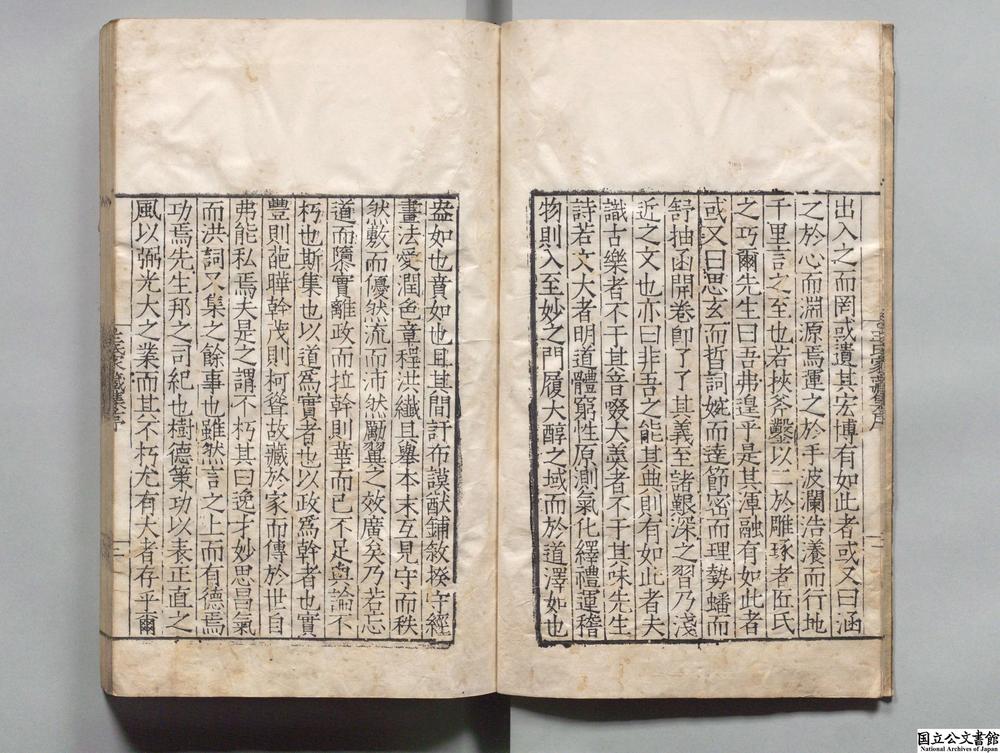 出入之而罔或遺其宏博有如此者或又曰涵
之於心而淵源焉運之於手波瀾浩瀁而行地
千里言之至也若挾斧鑿以一於雕琢者匠氏
之巧爾先生曰吾弗遑乎是其渾融有如此者
或又曰思玄而哲詞婉而達節密而理勢蟠而
舒抽函開卷卽了了其義至諸艱深之習乃淺
近之文也亦曰非吾之能其典則有如此者夫
識古樂者不于其音啜大羹者不于其味先生
詩若文大者明道體窮性原測氣化繹禮運稽
物則入至妙之門履大醇之域而於道澤如也
盎如也賁如也且其間訏布謨猷鋪敘揆守經
畫法愛潤色章程洪纖具舉本末互見守而秩
然敷而優然流而沛然勵翼之效廣矣乃若忘
道而隳實離政而拉幹則華而已不足與論不
朽也斯集也以道爲實者也以政爲幹者也實
豐則葩曄幹茂則柯聳故藏於家而傳於世自
弗能私焉夫是之謂不朽其曰逸才妙思昌氣
而洪詞又集之餘事也雖然言之上而有德焉
功焉先生邦之司紀也樹德策功以表正直之
風以弼光大之業而其不朽尤有大者存乎爾
王氏家藏集序
二
三
国立公文書館
National Archives of Japan